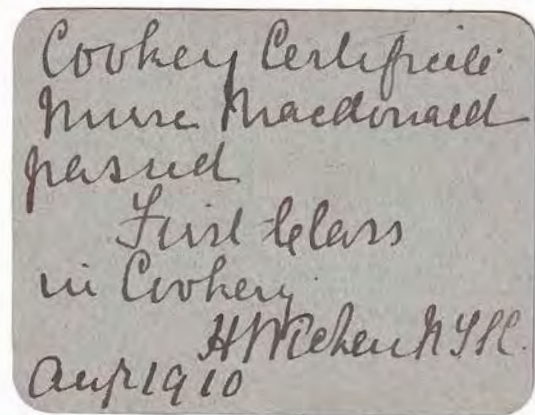 Cookey Certificate
Nurse Macdonald
passed
First Class
in Cookery
1910